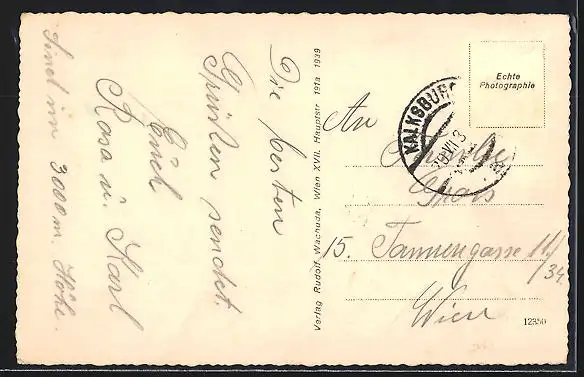 Die besten
Grüßen sendet.
Euch
Rosa u. Karl
Sind im 3000 m. Höhe.
Verlag Rudolf Wachuda, Wien XVII, Hauptstr 191a 1939
Echte
Photographie
KALKSBURG
An
15. Tannengasse 11/
34.
Wien
12350